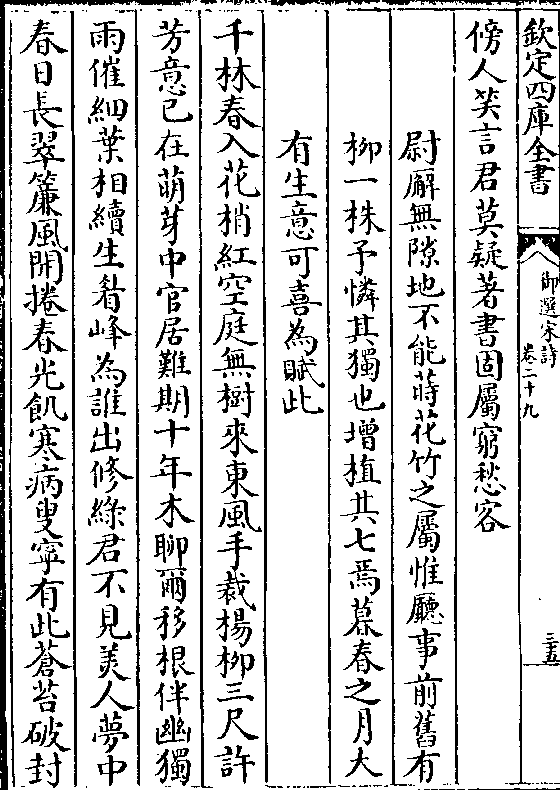 欽定四庫全書
御選宋詩
卷二十九
三五
傍人笑言君莫疑著書固屬窮愁客
尉廨無隙地不能蒔花竹之屬惟廳事前舊有
栁一株予憐其獨也增植其七焉暮春之月大
有生意可喜為賦此
千林春入花梢紅空庭無樹來東風手栽楊栁三尺許
芳意已在萌芽中官居難期十年木聊爾移根伴幽獨
雨催細葉相續生眉峰為誰出修綠君不見美人夢中
春日長翠簾風開捲春光飢寒病叟寧有此蒼苔破封